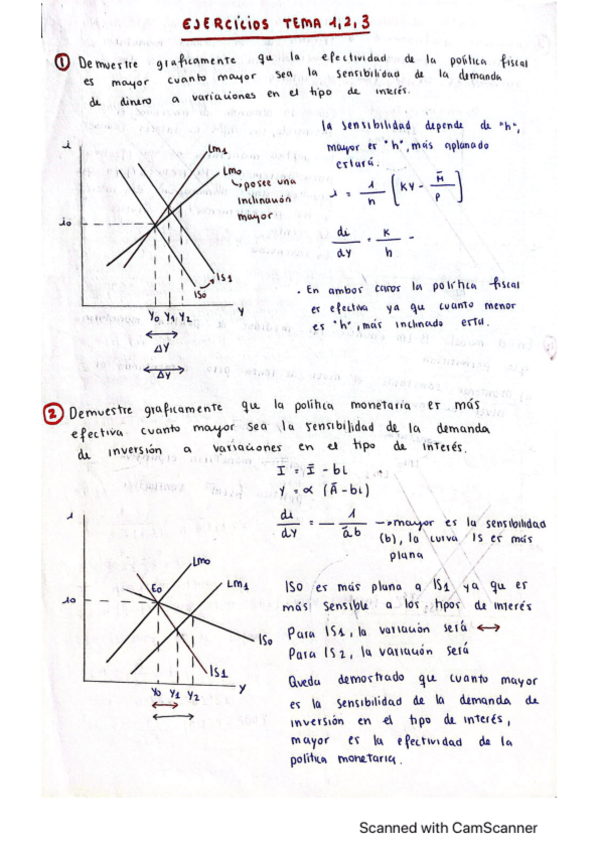 EJERCICIOS TEMA 1,2,3
① Demuestre graficamente que la efectividad de la política fiscal
es mayor cuanto mayor sea la sensibilidad de la demanda
de dinero a variaciones en el tipo de interés.
la sensibilidad depende de "h",
mayor es "h", más aplanado
estará.
i = 1/h [KY - M̄/P]
di/dY = K/h
i
Lm1
Lm0
posee una
inclinación
mayor
i0
IS1
IS0
Y0 Y1 Y2 Y
ΔY
ΔY
. En ambos casos la política fiscal
es efectiva ya qu cuanto menor
es "h", más inclinado esta.
② Demuestre graficamente que la política monetaria es más
efectiva cuanto mayor sea la sensibilidad de la demanda
de inversión a variaciones en el tipo de interés.
I = Ī - bi
Y = α (Ā - bi)
di/dY = - 1/āb → mayor es la sensibilidad
(b), la curva IS es más
plana
i
Lm0
E0
Lm1
i0
IS0
IS1
Y0 Y1 Y2 Y
IS0 es más plana a IS1 ya qu es
más sensible a los tipos de interés
Para IS1, la variación será ↔
Para IS2, la variación será
Queda demostrado que cuanto mayor
es la sensibilidad de la demanda de
inversión en el tipo de interés,
mayor es la efectividad de la
política monetaria.
Scanned with CamScanner